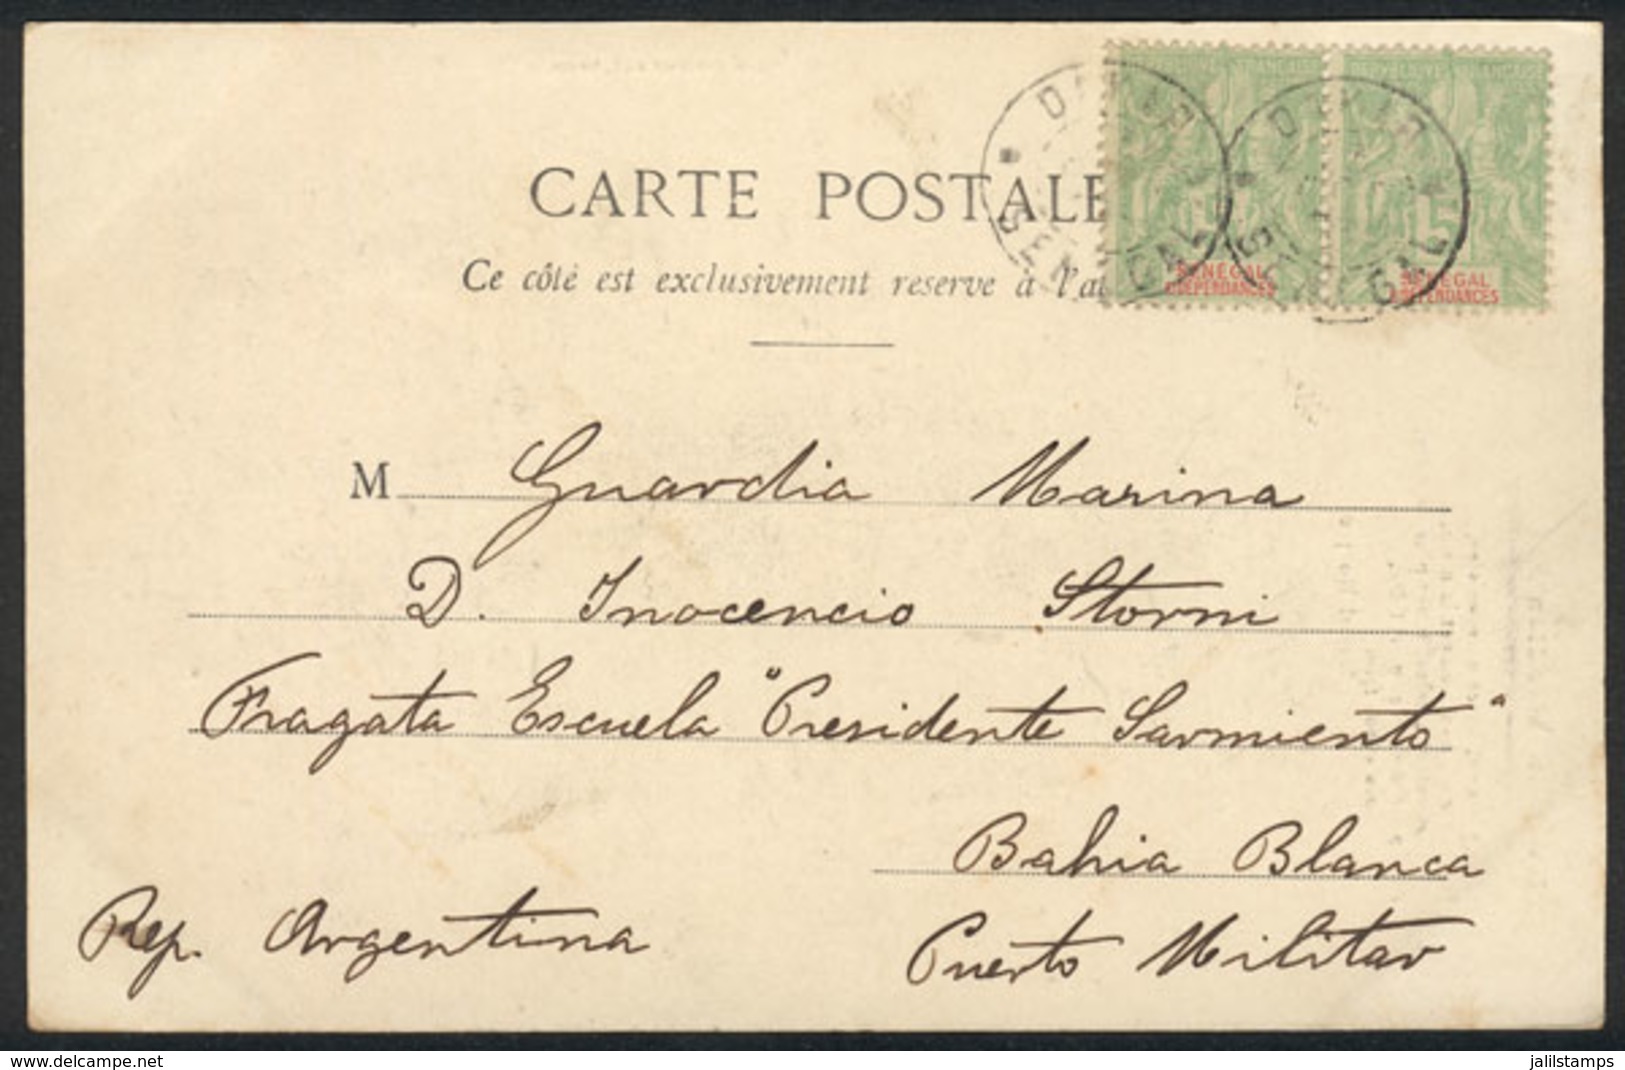 CARTE POSTALE
Ce côté est exclusivement reserve à l'a
SÉNÉGAL
SÉNÉGAL
5
M Guardia Marina
D. Inocencio Storni
Fragata Escuela "Presidente Sarmiento"
Bahia Blanca
Rep. Argentina
Puerto Militar
www.delcampe.net
jalilstamps